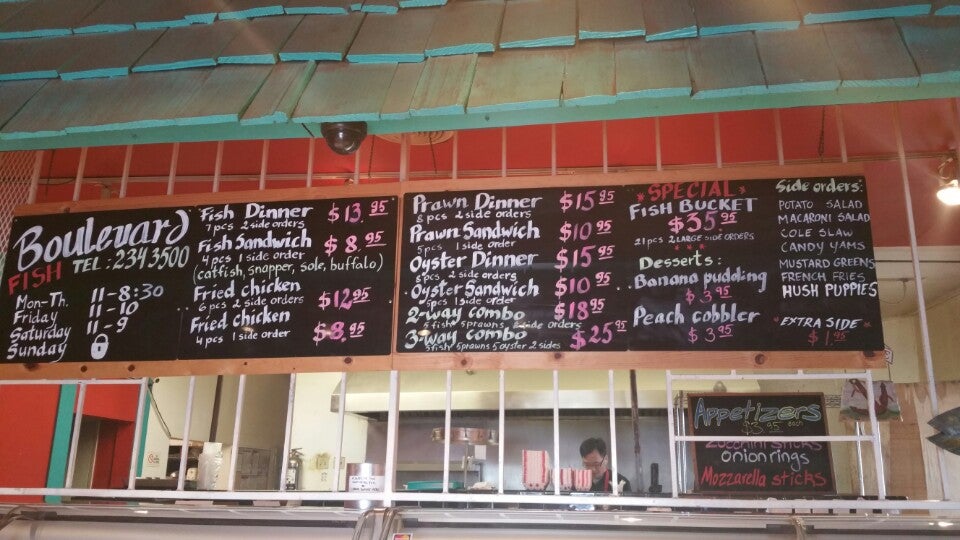 Boulevard
FISH TEL: 234 3500
Mon-Th. 11-8:30
Friday 11-10
Saturday 11-9
Sunday
Fish Dinner $13.95
7 pcs 2 side orders
Fish Sandwich $8.95
4 pcs 1 side order
(catfish, snapper, sole, buffalo)
Fried chicken $12.95
6 pcs 2 side orders
Fried chicken $8.95
4 pcs 1 side order
Prawn Dinner $15.95
8 pcs 2 side orders
Prawn Sandwich $10.95
5 pcs 1 side order
Oyster Dinner $15.95
pcs 2 side orders
Oyster Sandwich $10.95
5 pcs 1 side order
2-way combo $18.95
5 fish 5 prawns 2 side orders
3-way combo $25.95
5 fish 5 prawns 5 oyster 2 sides
*SPECIAL*
FISH BUCKET
$35.95
21 pcs 2 LARGE SIDE ORDERS
Desserts:
Banana pudding
$3.95
Peach cobbler
$3.95
Side orders:
POTATO SALAD
MACARONI SALAD
COLE SLAW
CANDY YAMS
MUSTARD GREENS
FRENCH FRIES
HUSH PUPPIES
*EXTRA SIDE*
$1.95
Appetizers
$3.95 each
Zucchini sticks
Onion rings
Mozzarella sticks